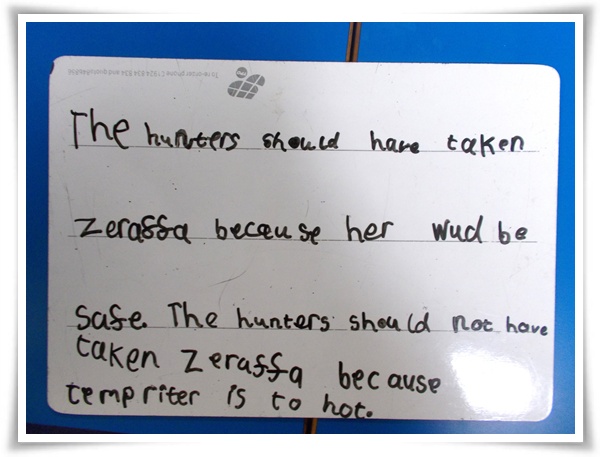 The hunters should have taken
Zeraffa because her wud be
safe. The hunters should not have
taken Zeraffa because
tempriter is to hot.